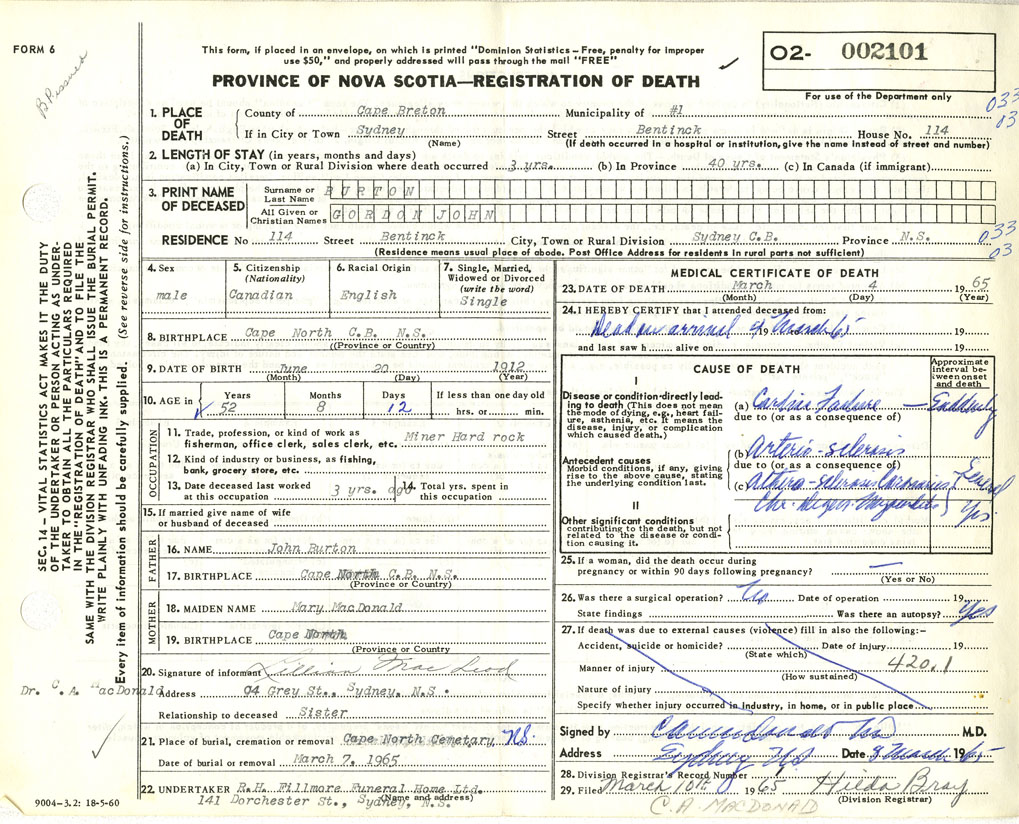 FORM 6
This form, if placed in an envelope, on which is printed "Dominion Statistics – Free, penalty for improper
use $50," and properly addressed will pass through the mail "FREE"
PROVINCE OF NOVA SCOTIA—REGISTRATION OF DEATH
02- 002101
For use of the Department only
033
03
SEC. 14 – VITAL STATISTICS ACT MAKES IT THE DUTY
OF THE UNDERTAKER OR PERSON ACTING AS UNDER-
TAKER TO OBTAIN ALL THE PARTICULARS REQUIRED
IN THE "REGISTRATION OF DEATH" AND TO FILE THE
SAME WITH THE DIVISION REGISTRAR WHO SHALL ISSUE THE BURIAL PERMIT.
WRITE PLAINLY WITH UNFADING INK. THIS IS A PERMANENT RECORD.
Every item of information should be carefully supplied. (See reverse side for instructions.)
1. PLACE OF DEATH County of Cape Breton Municipality of #1
If in City or Town Sydney Street Bentinck House No. 114
(Name) (If death occurred in a hospital or institution, give the name instead of street and number)
2. LENGTH OF STAY (in years, months and days)
(a) In City, Town or Rural Division where death occurred 3 yrs. (b) In Province 40 yrs. (c) In Canada (if immigrant)
3. PRINT NAME OF DECEASED Surname or Last Name BURTON
All Given or Christian Names GORDON JOHN
033
03
RESIDENCE No 114 Street Bentinck City, Town or Rural Division Sydney C.B. Province N.S.
(Residence means usual place of abode. Post Office Address for residents in rural parts not sufficient)
4. Sex male
5. Citizenship (Nationality) Canadian
6. Racial Origin English
7. Single, Married, Widowed or Divorced (write the word) Single
8. BIRTHPLACE Cape North C.B. N.S.
(Province or Country)
9. DATE OF BIRTH June 20 1912
(Month) (Day) (Year)
10. AGE in Years 52 Months 8 Days 12 If less than one day old hrs. or min.
OCCUPATION
11. Trade, profession, or kind of work as fisherman, office clerk, sales clerk, etc. Miner Hard rock
12. Kind of industry or business, as fishing, bank, grocery store, etc.
13. Date deceased last worked at this occupation 3 yrs. ago
14. Total yrs. spent in this occupation
15. If married give name of wife or husband of deceased
FATHER
16. NAME John Burton
17. BIRTHPLACE Cape North C.B. N.S.
(Province or Country)
MOTHER
18. MAIDEN NAME Mary MacDonald
19. BIRTHPLACE Cape North
(Province or Country)
20. Signature of informant Lillian MacLeod
Dr. C. A. MacDonald
Address 04 Grey St., Sydney, N.S.
Relationship to deceased Sister
21. Place of burial, cremation or removal Cape North Cemetary, NS.
Date of burial or removal March 7, 1965
22. UNDERTAKER R.H. Fillmore Funeral Home Ltd.
141 Dorchester St., Sydney, N.S.
(Name and address)
9004–3.2: 18-5-60
MEDICAL CERTIFICATE OF DEATH
23. DATE OF DEATH March 4 1965
(Month) (Day) (Year)
24. I HEREBY CERTIFY that I attended deceased from
Dead on arrival 4 19 March 65 19
and last saw h alive on 19
CAUSE OF DEATH
Approximate interval between onset and death
I
Disease or condition directly leading to death (This does not mean the mode of dying, e.g., heart failure, asthenia, etc. It means the disease, injury, or complication which caused death.)
(a) Cardiac Failure — Suddenly
due to (or as a consequence of)
Antecedent causes
Morbid conditions, if any, giving rise to the above cause, stating the underlying condition last.
(b) Arterio-sclerosis
due to (or as a consequence of)
(c) Athero-sclerosis Coronaries Several
Chr. Degen. Myocarditis Yrs.
II
Other significant conditions contributing to the death, but not related to the disease or condition causing it.
25. If a woman, did the death occur during pregnancy or within 90 days following pregnancy? —
(Yes or No)
26. Was there a surgical operation? No Date of operation 19
State findings Was there an autopsy? Yes
27. If death was due to external causes (violence) fill in also the following:–
Accident, suicide or homicide? Date of injury 19
(State which)
Manner of injury 420.1
(How sustained)
Nature of injury
Specify whether injury occurred in industry, in home, or in public place
Signed by M.D.
Address Sydney NS Date 8 March 1965
28. Division Registrar's Record Number
29. Filed March 10th 1965 Hilda Bray
(Division Registrar)
C. A. MACDONALD